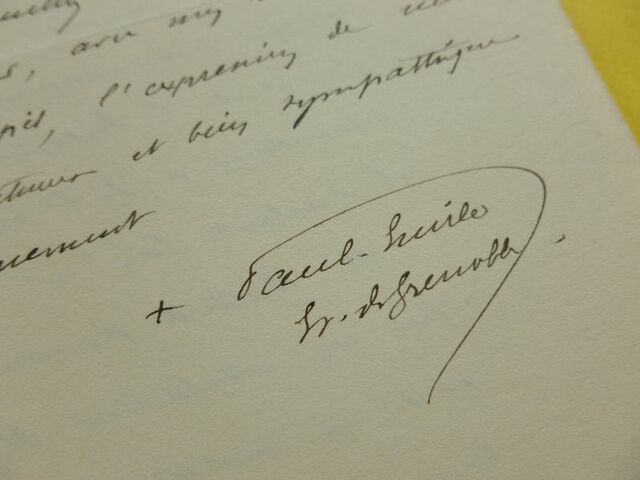 avec mes
l'expression de
et bien sympathique
+ Paul-Emile
Ev. de Grenoble.